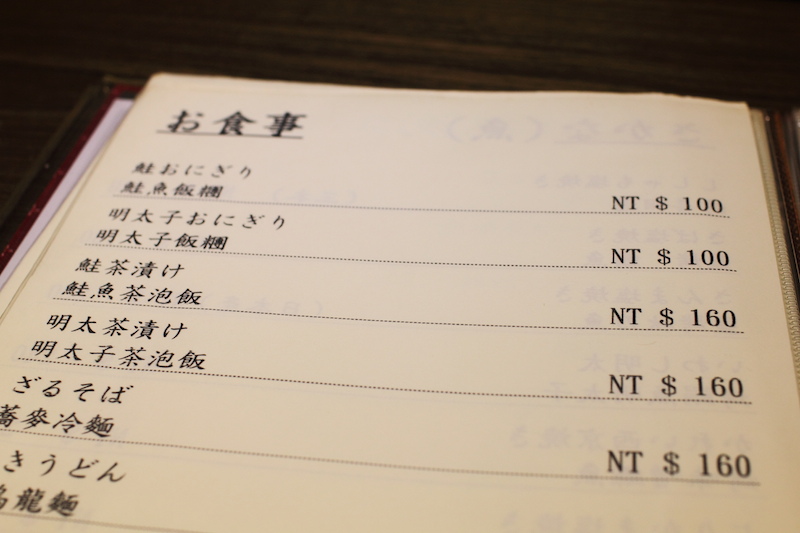 お食事
鮭おにぎり
鮭魚飯糰
NT $ 100
明太子おにぎり
明太子飯糰
NT $ 100
鮭茶漬け
鮭魚茶泡飯
NT $ 160
明太茶漬け
明太子茶泡飯
NT $ 160
ざるそば
蕎麥冷麵
NT $ 160
きうどん
烏龍麵